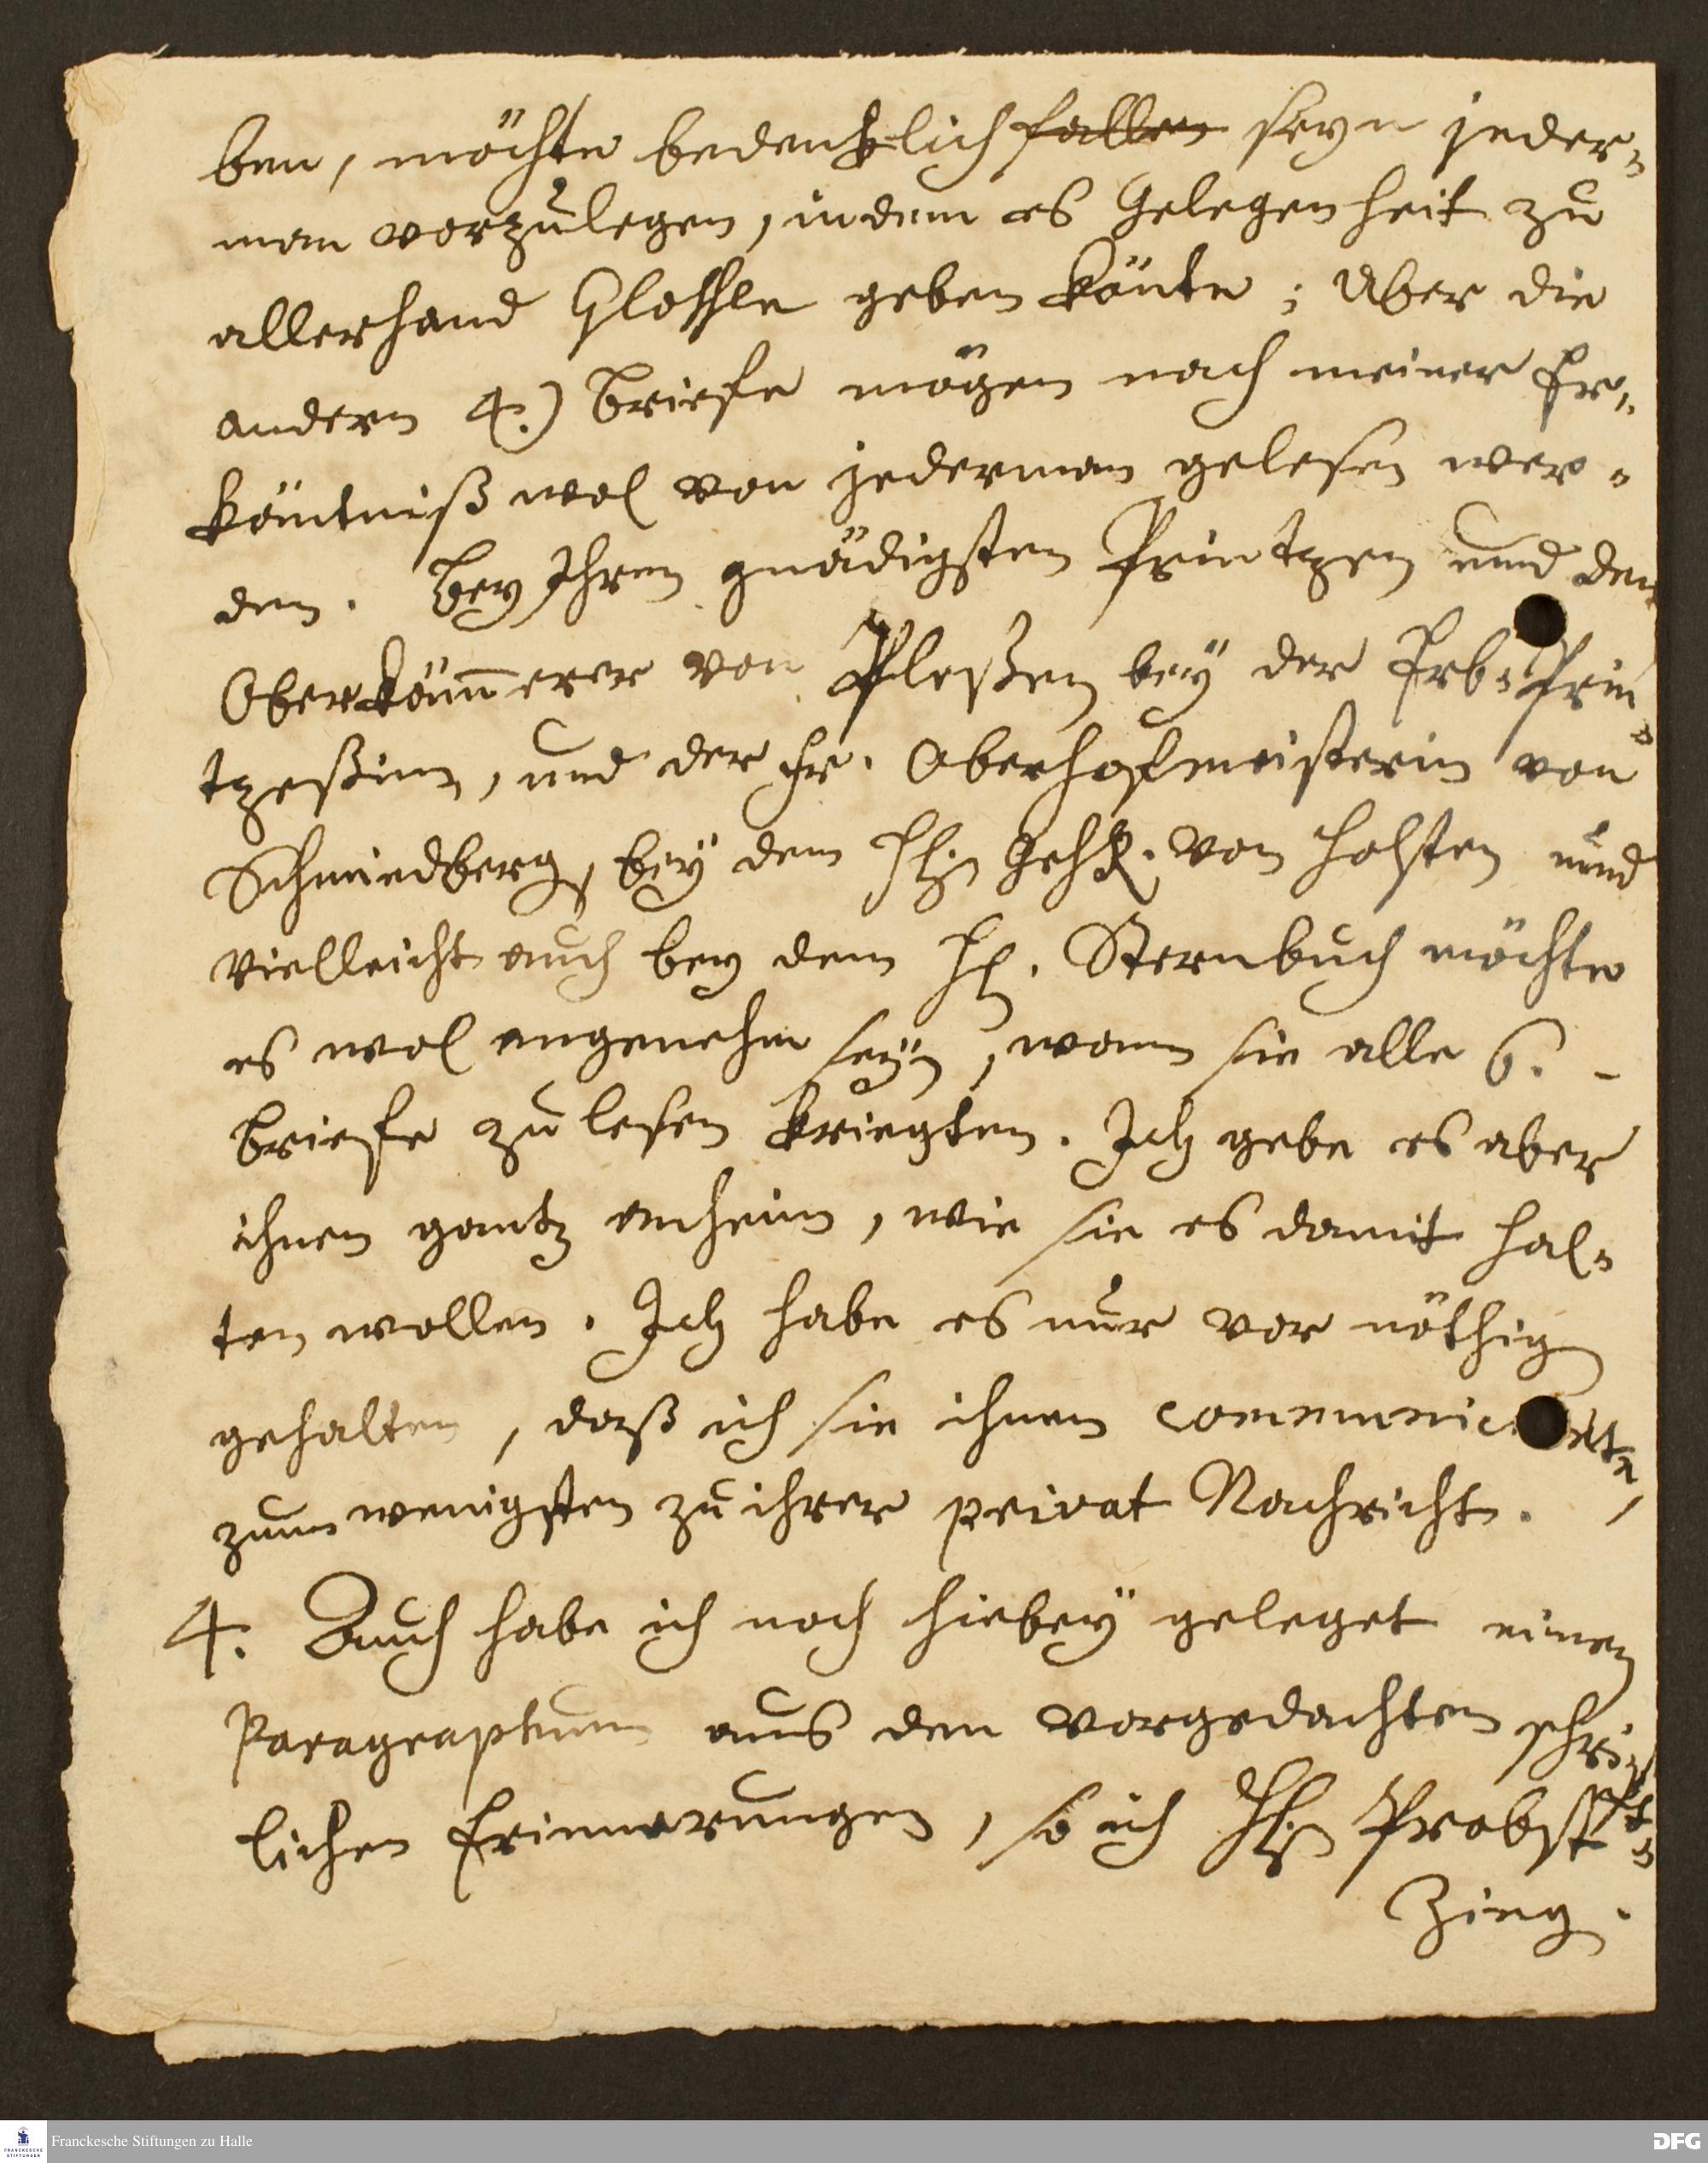 ben, möchte bedencklich fallen seyn jeder=
man vorzulegen, indem es Gelegenheit zu
allerhand Glossen geben könte; Aber die
andern 4.) Briefe mögen nach meiner Er=
käntniß wol von jederman gelesen wer=
den. Bey Ihren gnädigsten Printzen und den
Oberkämerer von Pleßen bey der Erb=Prin
tzeßinn, und der Fr. Oberhofmeisterin von
Schmiedberg, bey dem HEn von Holsten und
vielleicht auch bey dem H. Sternbuch möchte
es wol angenehm seyn, wann sie alle 6. -
Briefe zu lesen kriegten. Ich gebe es aber
ihnen gantz anheim, wie sie es damit hal=
ten wollen. Ich habe es nur vor nöthig
gehalten, daß ich sie ihnen communicirte,
zum wenigsten zu ihrer privat Nachricht.
4. Auch habe ich noch hiebey geleget einen
Paragraphum aus den vorgedachten schrift=
lichen Erinnerungen, so ich HEn Probst
Zieg.
Franckesche Stiftungen zu Halle
FRANCKESCHE STIFTUNGEN
DFG